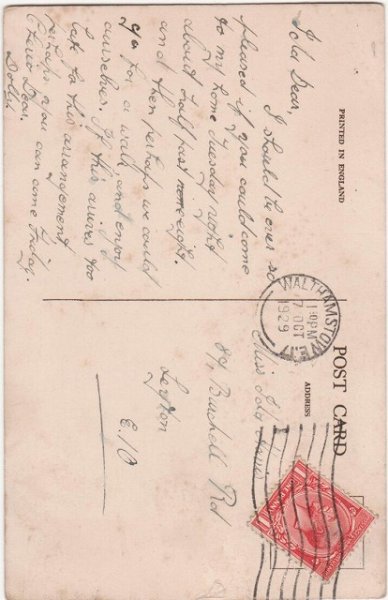 Ida Dear,
I should be ever so
pleased if you could come
to my home Tuesday night
about half past eight.
and then perhaps we could
go for a walk, and enjoy
ourselves. If this arrives too
late for this arrangement
perhaps you can come Friday.
Cheerio Dear.
Dolly.
PRINTED IN ENGLAND
POST CARD
ADDRESS
WALTHAMSTOW E.17
PM
7 OCT
1929
Miss Ida
Burchell Rd
Leyton
E. 10